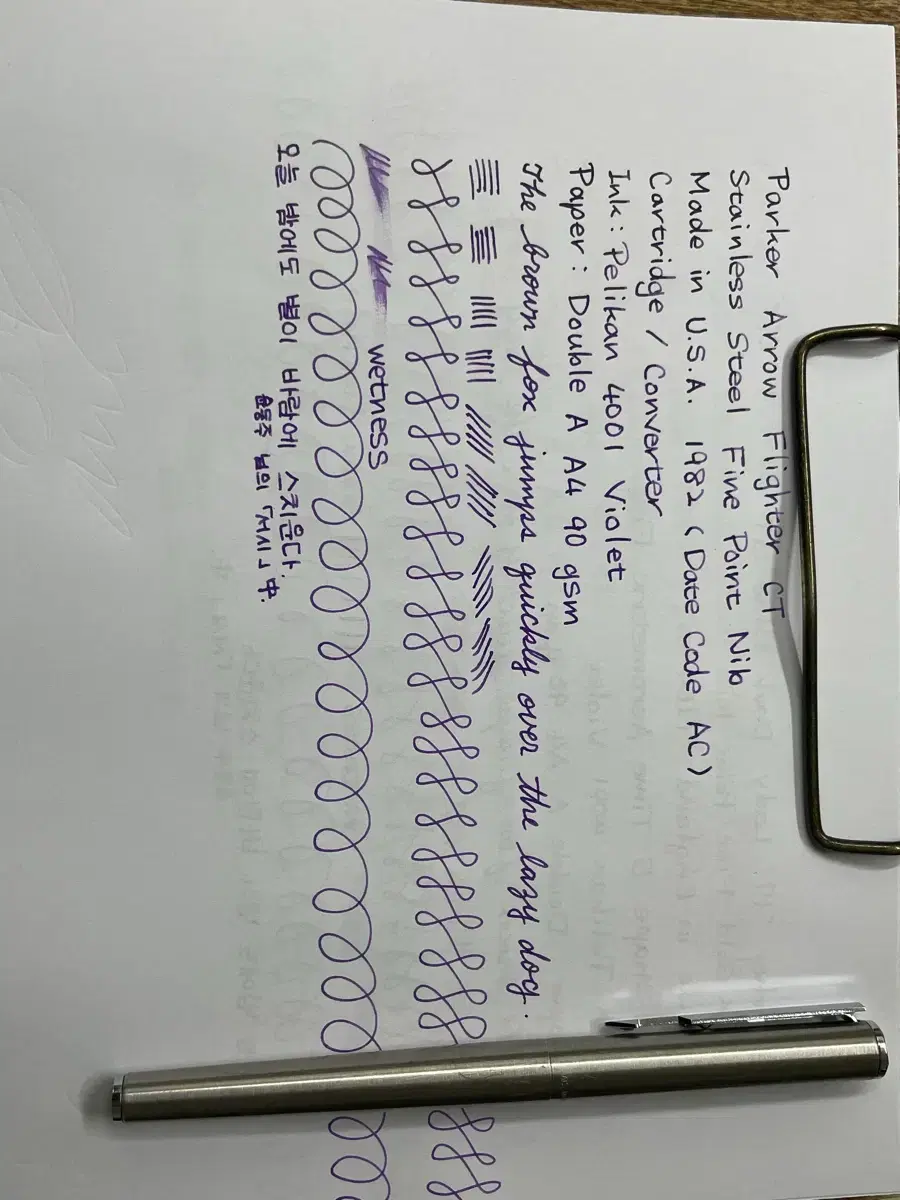 Parker Arrow Flighter CT
Stainless Steel Fine Point Nib
Made in U.S.A. 1982 (Date Code AC)
Cartridge / Converter
Ink: Pelikan 4001 Violet
Paper: Double A A4 90 gsm
The brown fox jumps quickly over the lazy dog.
wetness
오늘 밤에도 별이 바람에 스치운다.
윤동주 님의 「서시」 中.